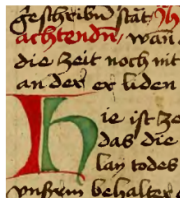 geschribn stat Jh
achtendn, wan
die Zeit noch nit
an der er liden
Hie ist ze
das die
lay todes
vnserm behalter